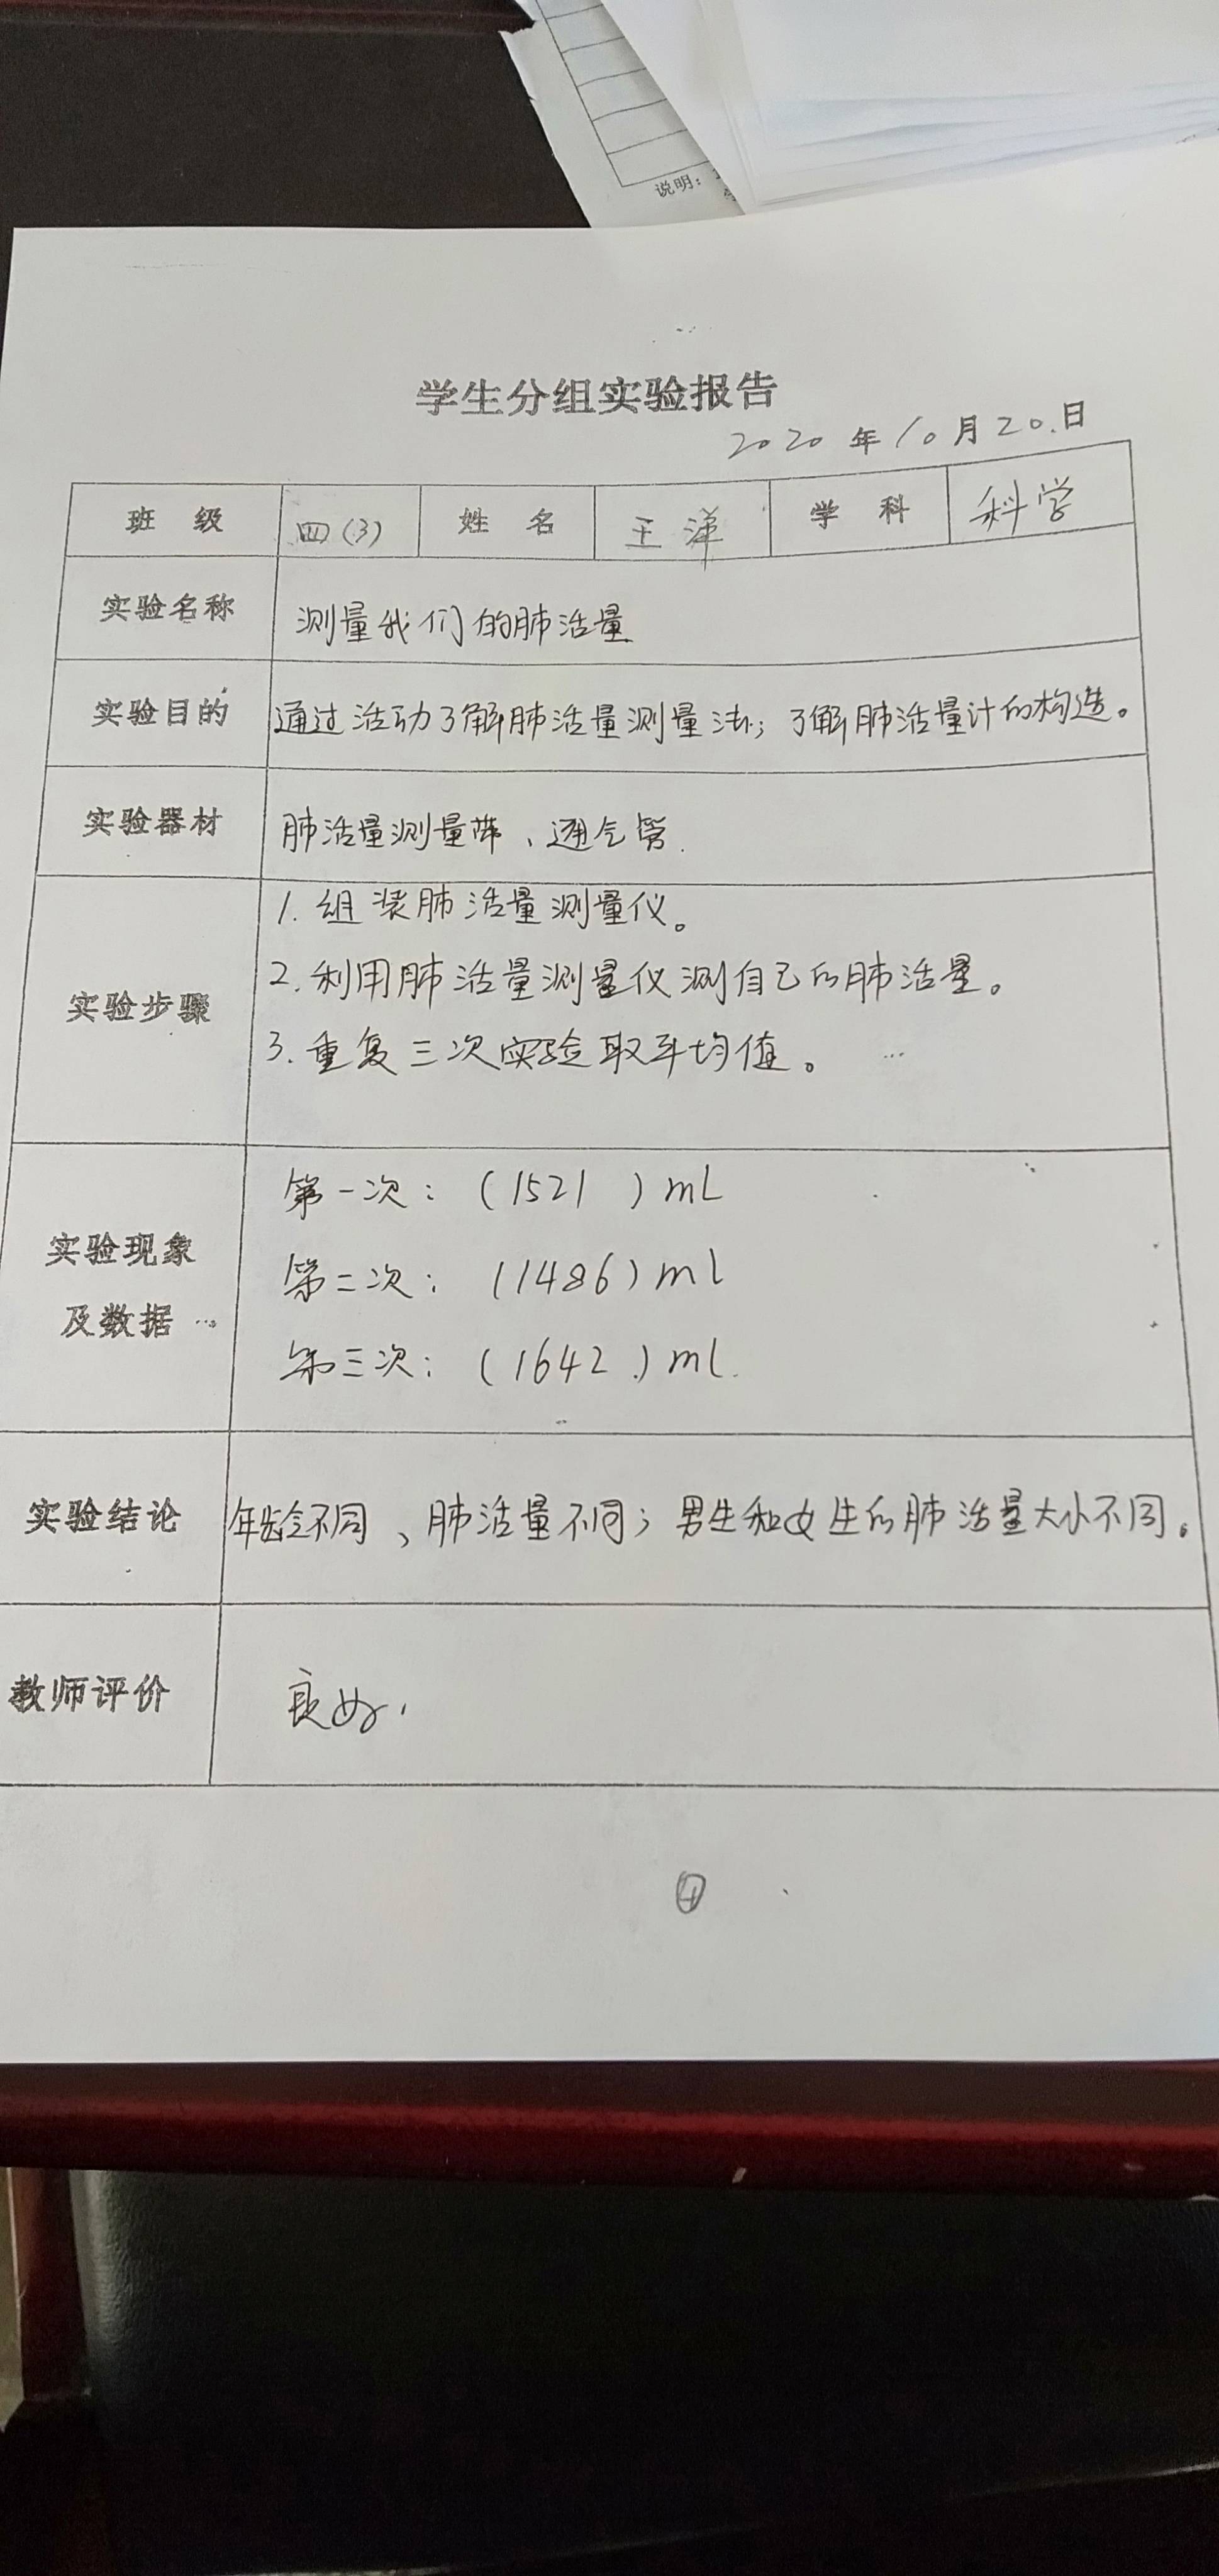 说明：
学生分组实验报告
2020年10月20日
班 级 四（3） 姓 名 王洋 学 科 科学
实验名称 测量我们的肺活量
实验目的 通过活动了解肺活量测量法；了解肺活量计的构造。
实验器材 肺活量测量带、通气管.
1. 组装肺活量测量仪。
2. 利用肺活量测量仪测自己的肺活量。
实验步骤
3. 重复三次实验取平均值。
第一次：（1521 ）mL
实验现象
第二次：（1486）mL
及数据
第三次：（1642.）mL.
实验结论 年龄不同、肺活量不同；男生和女生的肺活量大小不同。
教师评价 良好.
④